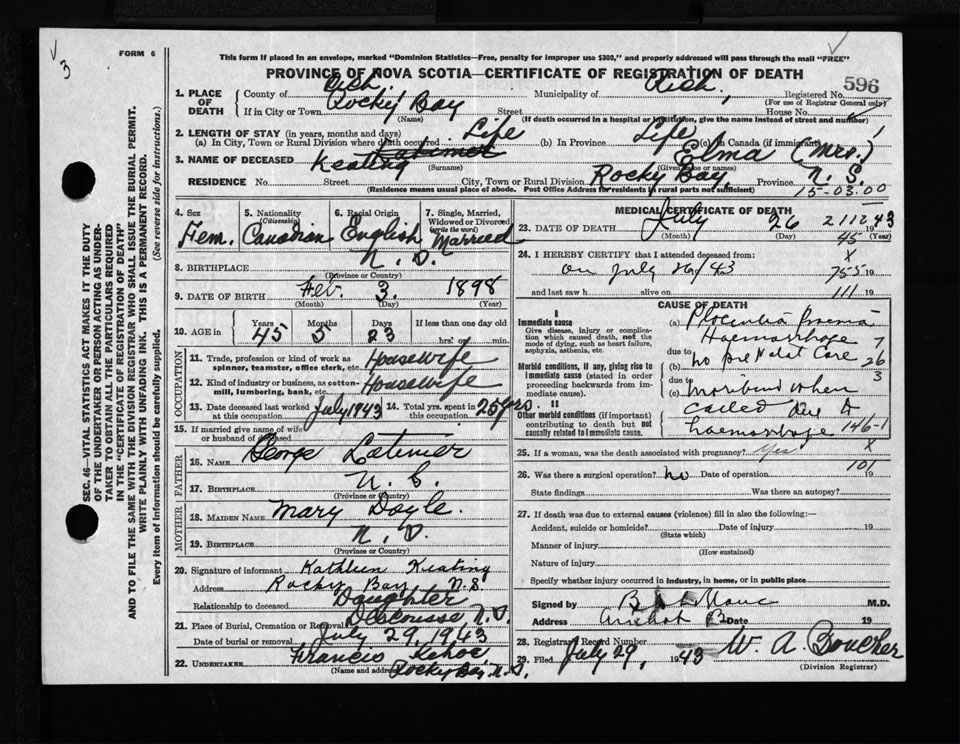 V
3
FORM 6
This form if placed in an envelope, marked "Dominion Statistics—Free, penalty for improper use $300," and properly addressed will pass through the mail "FREE"
PROVINCE OF NOVA SCOTIA—CERTIFICATE OF REGISTRATION OF DEATH
596
1. PLACE OF DEATH
County of Rich. Municipality of Rich. Registered No.
(For use of Registrar General only)
If in City or Town Rocky Bay Street House No.
(Name) (If death occurred in a hospital or institution, give the name instead of street and number)
2. LENGTH OF STAY (in years, months and days)
(a) In City, Town or Rural Division where death occurred Life (b) In Province Life (c) In Canada (if immigrant)
3. NAME OF DECEASED Keating Latimer Elma (Mrs.)
(Surname) (Given name or names)
RESIDENCE No. Street City, Town or Rural Division Rocky Bay, Province N. S.
(Residence means usual place of abode. Post Office Address for residents in rural parts not sufficient) 15-03.00
4. Sex Fem.
5. Nationality (Citizenship) Canadian
6. Racial Origin English
7. Single, Married, Widowed or Divorced (write the word) Married
8. BIRTHPLACE N. S.
(Province or Country)
9. DATE OF BIRTH Feb. 3. 1898
(Month) (Day) (Year)
10. AGE in Years Months Days If less than one day
45 5 23 hrs. or min.
OCCUPATION
11. Trade, profession or kind of work as spinner, teamster, office clerk, etc. Housewife
12. Kind of industry or business, as cotton-mill, lumbering, bank, etc. Housewife
13. Date deceased last worked at this occupation July 1943 14. Total yrs. spent in this occupation 25 yrs.
15. If married give name of wife or husband of deceased
FATHER
16. Name George Latimer
17. Birthplace N. S.
(Province or Country)
MOTHER
18. Maiden Name Mary Doyle
19. Birthplace N. S.
(Province or Country)
20. Signature of informant Kathleen Keating
Address Rocky Bay N.S
Relationship to deceased Daughter
21. Place of Burial, Cremation or Removal Descousse, N.S.
Date of burial or removal July 29, 1943
22. UNDERTAKER Francis Kehoe,
(Name and address) Rocky Bay, N.S.
MEDICAL CERTIFICATE OF DEATH
23. DATE OF DEATH July 26 2112 1943
(Month) (Day) 45 (Year)
24. I HEREBY CERTIFY that I attended deceased from: X
on July 26/43 755 19
and last saw h alive on 111 19
CAUSE OF DEATH
I
Immediate cause
Give disease, injury or complication which caused death, not the mode of dying, such as heart failure, asphyxia, asthenia, etc.
Morbid conditions, if any, giving rise to immediate cause (stated in order proceeding backwards from immediate cause).
II
Other morbid conditions (if important) contributing to death but not causally related to immediate cause.
(a) Placenta Praevia
Haemorrhage 7
due to
(b) no pre Natal Care 26
due to 3
(c) moribund when
called due to
haemorrhage 146-1
25. If a woman, was the death associated with pregnancy? Yes X
101
26. Was there a surgical operation? no Date of operation 19
State findings Was there an autopsy?
27. If death was due to external causes (violence) fill in also the following:—
Accident, suicide or homicide? Date of injury 19
(State which)
Manner of injury
(How sustained)
Nature of injury
Specify whether injury occurred in industry, in home, or in public place
Signed by M.D.
Address Arichat Date 19
28. Registrar's Record Number
29. Filed July 29, 1943 W. A. Boucher
(Division Registrar)
SEC. 46—VITAL STATISTICS ACT MAKES IT THE DUTY OF THE UNDERTAKER OR PERSON ACTING AS UNDERTAKER TO OBTAIN ALL THE PARTICULARS REQUIRED IN THE "CERTIFICATE OF REGISTRATION OF DEATH"
AND TO FILE THE SAME WITH THE DIVISION REGISTRAR WHO SHALL ISSUE THE BURIAL PERMIT.
WRITE PLAINLY WITH UNFADING INK. THIS IS A PERMANENT RECORD.
Every item of information should be carefully supplied. (See reverse side for instructions.)